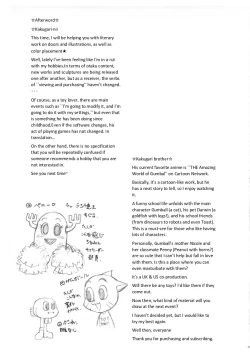 ☆Afterword☆
☆Kakugari mi
This time, I will be helping you with literary
work on doom and illustrations, as well as
color placement★
Well, lately I've been feeling like I'm in a rut
with my hobbies.In terms of otaku content,
new works and sculptures are being released
one after another, but as a receiver, the verbs
of ``viewing and purchasing'' haven't changed.
Of course, as a toy lover, there are main
events such as ``I'm going to modify it, and I'm
going to do it with my settings,'' but even that
is something he has been doing since
childhood.Even if the software changes, his
act of playing games has not changed. In
translation...
On the other hand, there is no specification
that you will be repeatedly confused if
someone recommends a hobby that you are
not interested in.
See you next time~
☆Kakugari brother☆
His current favorite anime is ``THE Amazing
World of Gumball'' on Cartoon Network.
Basically, it's a cartoon-like work, but he
has a next story to tell, so I enjoy watching
it.
A funny school life unfolds with the main
character Gumball (a cat), his pet Darwin (a
goldfish with legs!), and his school friends
(from dinosaurs to robots and even Toast).
This is a must-see for those who like having
lots of characters.
Personally, Gumball's mother Nicole and
her classmate Penny (Peanut with horns?)
are so cute that I can't help but fall in love
with them. Is this a place where you can
even masturbate with them?
It's a UK & US co-production.
Will there be any toys? I'd like them if they
come out.
Now then, what kind of material will you
draw at the next event?
I haven't decided yet, but I would like to
try my best again.
Well then, everyone
Thank you for purchasing and subscribing.